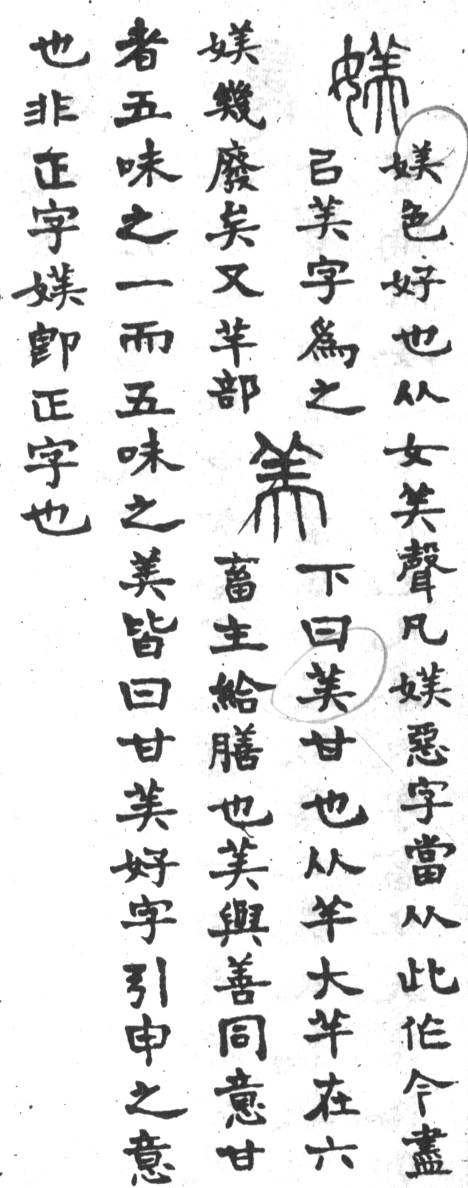 媄
媄色好也从女美聲凡媄惡字當从此作今盡
㠯美字爲之
媄幾廢矣又羊部
美
下曰美甘也从羊大羊在六
畜主給膳也美與善同意甘
者五味之一而五味之美皆曰甘美好字引申之意
也非正字媄卽正字也